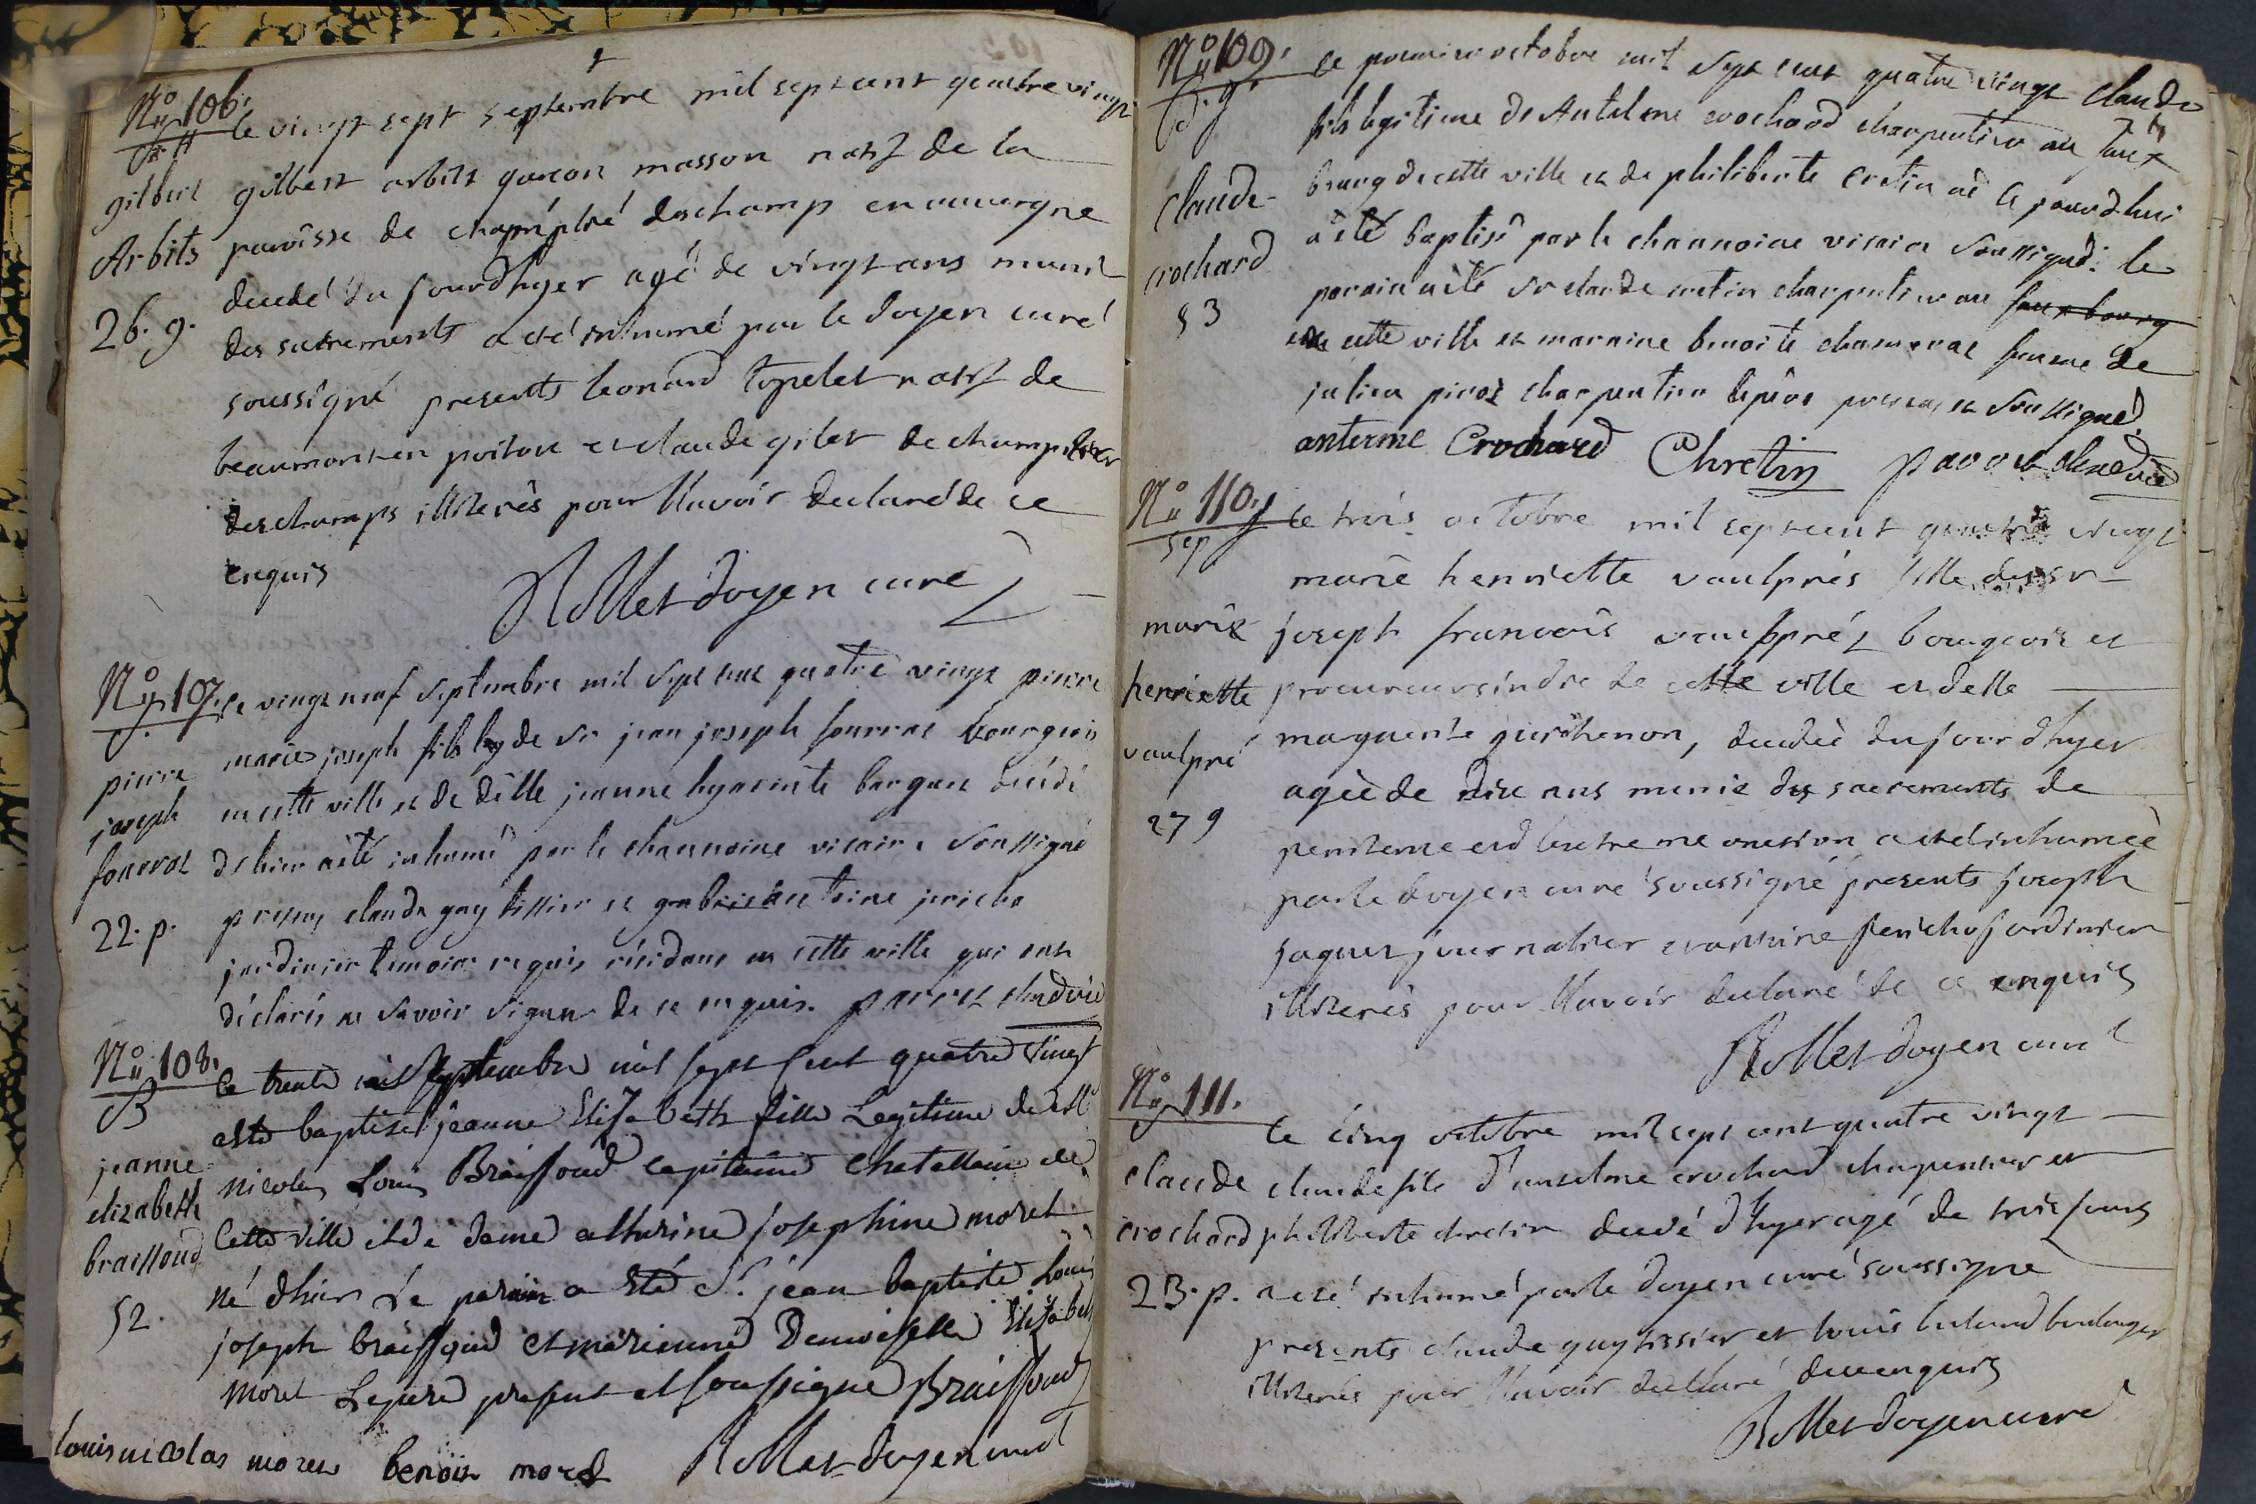 No 106.
gilbert
Arbits
26. g.
le vingt sept septembre mil sept cent quatre vingt
gilbert arbits garcon masson natif de la
paroisse de champétré deschamp en auvergne
decedé du jourdhyer agé de vingt ans muni
des sacrements a eté inhumé par le doyen curé
soussigné presents leonard topelet natif de
beaumont en poitou et claude gilet de
deschamps illiterés pour l'avoir declaré de ce
enquis
Rollet doyen curé
No 107.
S.
pierre
joseph
fourrat
22. p.
le vingt neuf septembre mil sept cent quatre vingt pierre
marie joseph fils leg de sr jean joseph fourrat bourgeois
en cette ville et de dlle jeanne hyacinte bargue décédé
d'hier a été inhumé par le channoine vicaire soussigné
presens claude guy tissier et antoine jericho
jardinier temoins requis résidans en cette ville qui ont
déclarés ne savoir signer de ce enquis.
No 108.
B
jeanne
elizabeth
braissoud
52.
le trente septembre mil sept cent quatre vingt
a été baptisé jeanne Elizabeth fille Legitime de
nicolas Louis Braissoud capitaine chatellain de
Cette ville et de dame catherine josephine moret
né dhier Le parain a été Sr. jean baptiste Louis
joseph braissoud et maraine Demoiselle Elizabeth
moret Le pere present et soussigné Braissoud
louis nicolas moret benoit moret Rollet doyen curé
No 109.
B. g.
Claude
crochard
53
le premier octobre mil sept cent quatre vingt claude
fils legitime de Antelme crochard charpentier au faux
bourg de cette ville et de philiberte cretin né ce jourdhui
a été baptisé par le channoine vicaire soussigné: le
parain a été sr claude cretin charpentier au faux bourg
de cette ville et maraine benoite femme de
julien pirot charpentier le père present et soussigné.
anterme Crochard Chretin
No 110.
sep
marie
henriette
vaulpré
27 g
le trois octobre mil sept cent quatre vingt
marie henriette vaulprés fille de sr
joseph francois vaulpréz bourgeois et
procureur sindic de cette ville et delle
marguerite, decedée du jour dhyer
agée de dix ans munie des sacrements de
penitence et d'extreme onction a eté inhumée
par le doyen curé soussigné presents joseph
journalier et antoine jericho jardinier
illiterés pour l'avoir declaré de ce enquis
Rollet doyen curé
No 111.
claude
crochard
23. p.
le cinq octobre mil sept cent quatre vingt
claude fils d'anselme crochard charpentier et
philiberte chretin decedé d'hyer agé de trois jours
a eté inhumé par le doyen curé soussigné
presents claude guy tissier et louis boulanger
illiterés pour l'avoir declaré de ce enquis
Rollet doyen curé